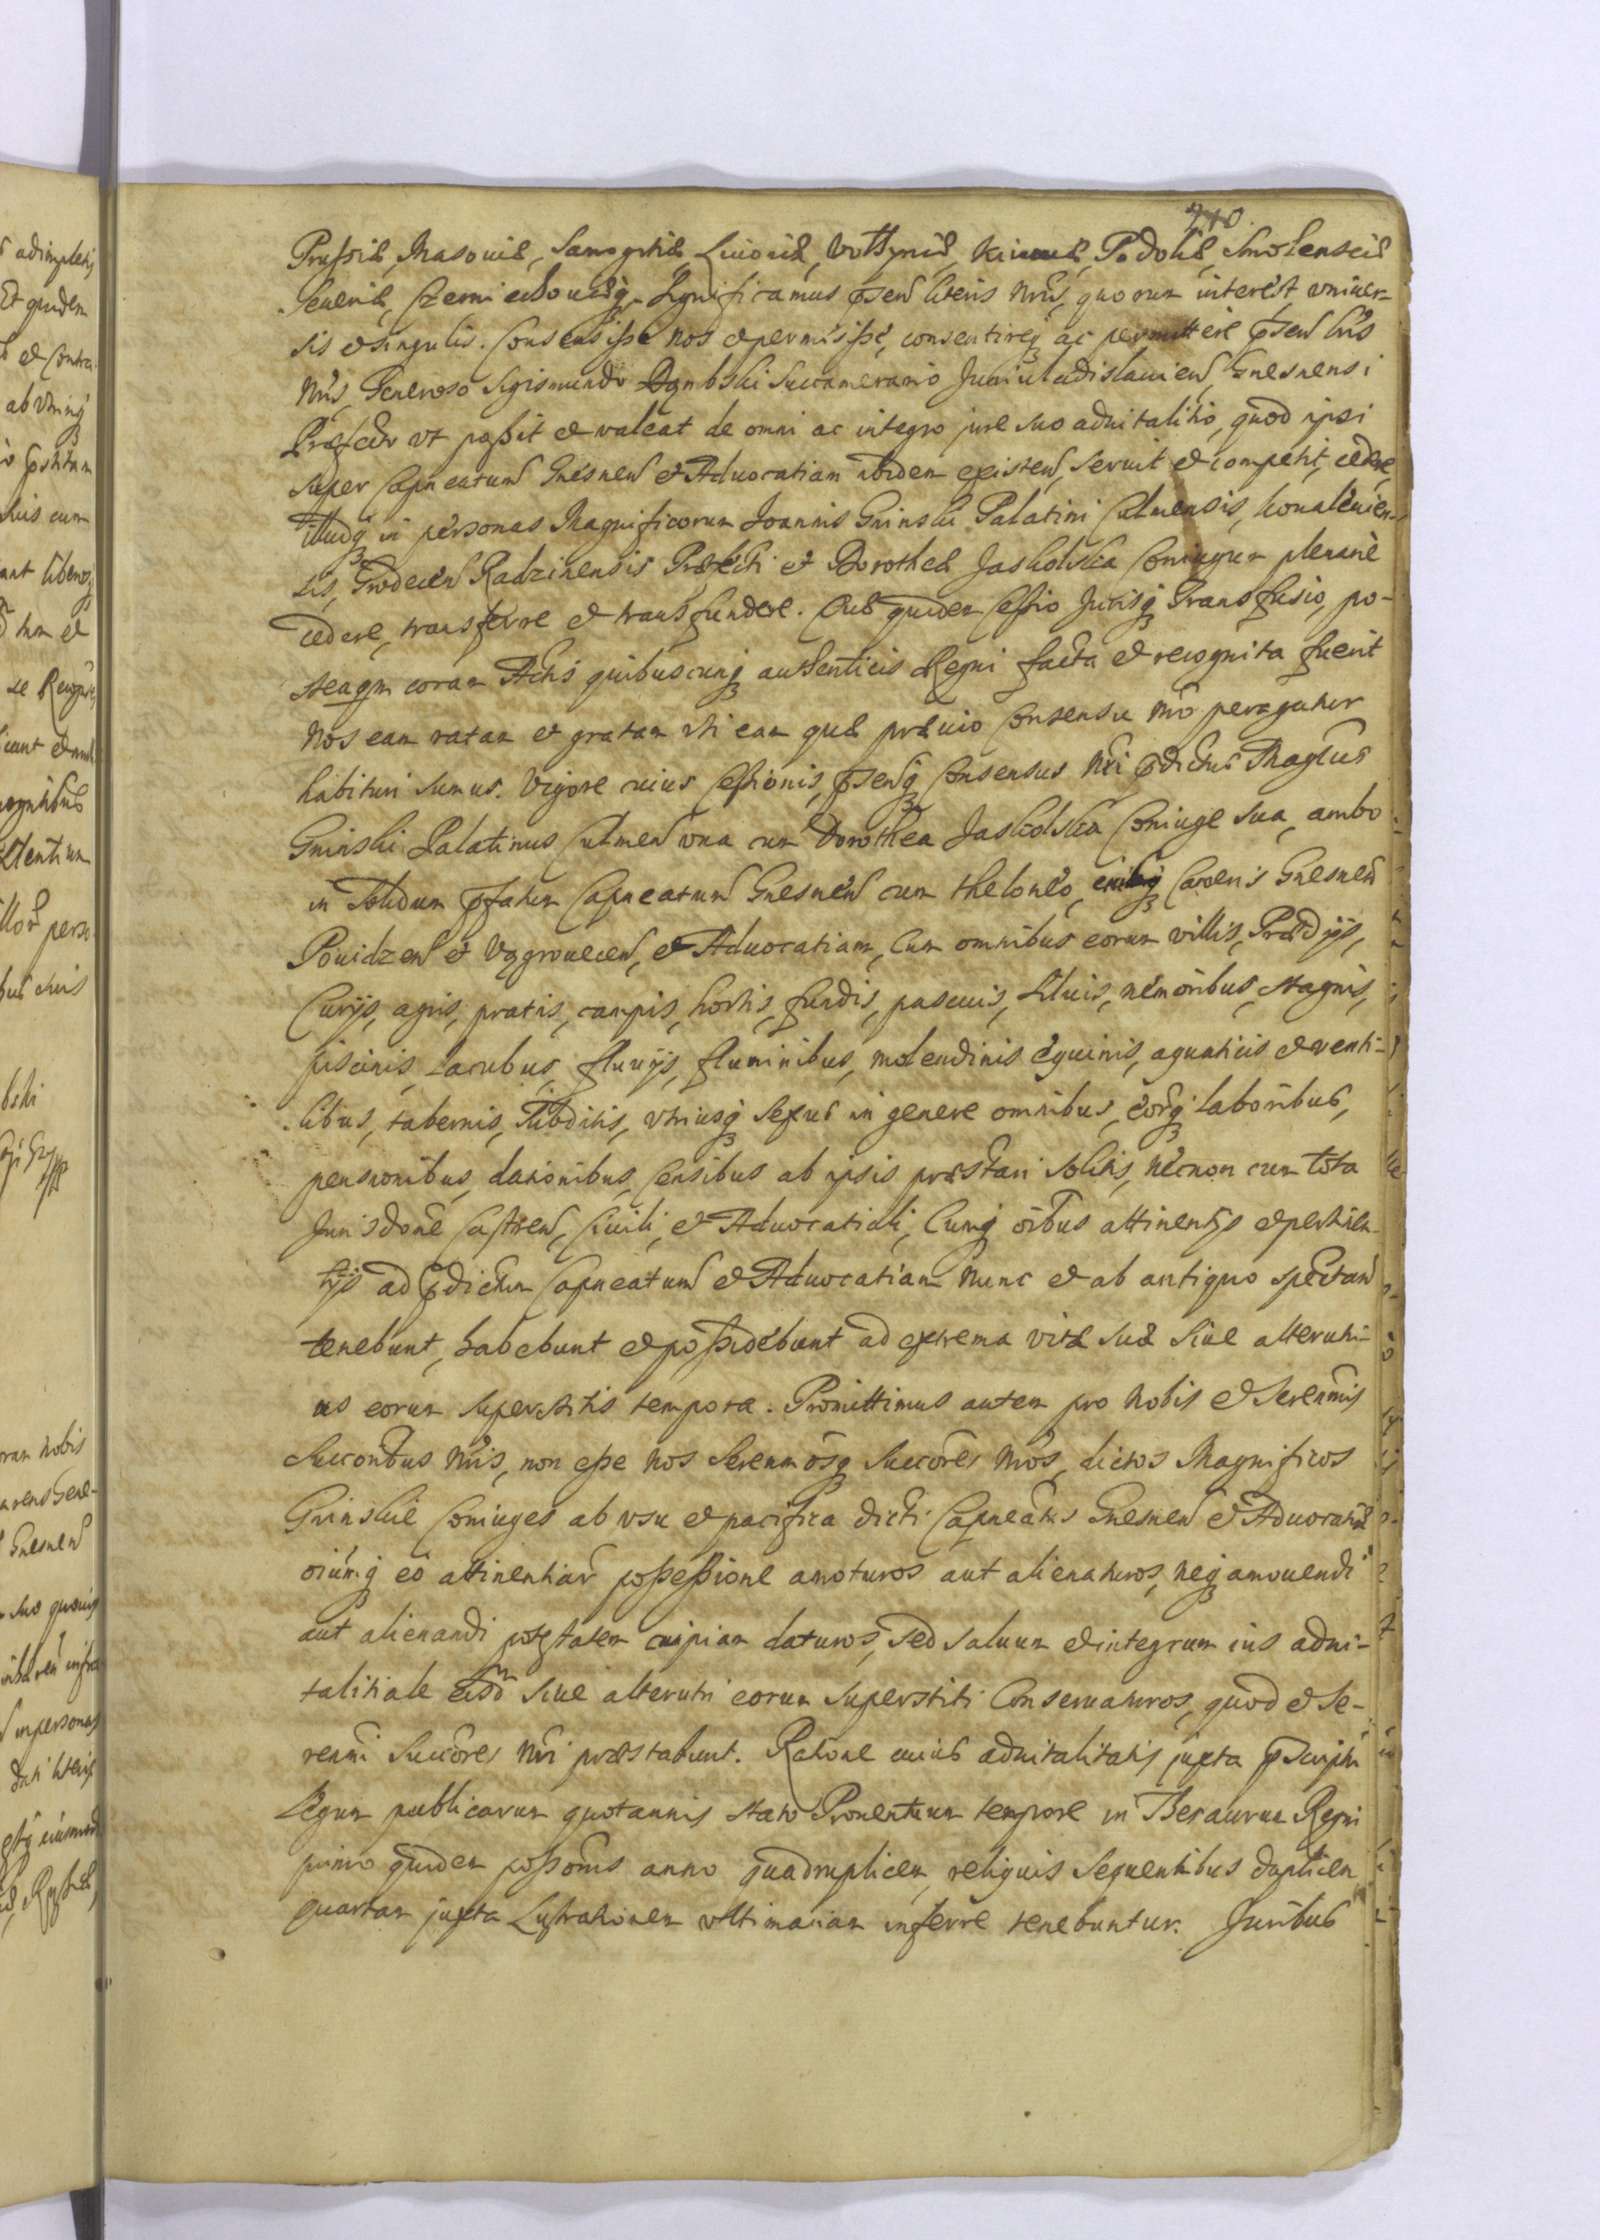 210
Prussiæ, Masouiæ, Samogitiæ, Liuoniæ, Vollyniæ, Kiiouiæ, Podoliæ, Smolensciæ
Seueriæ, Czerniechouiæq. Significamus psen literis nris, quorum interest, vniuer-
sis et singulis. Consensisse nos et permisisse, consentireq ac permittere psen lris
nris, Generoso Sigismundo Dąmbski Succamerario Juniuladislauien, Gnesnensi
Præfecto vt possit et valeat de omni ac integro jure suo aduitalitio, quod ipsi
super Capneatum Gnesnen et Aduocatiam ibidem existen, seruit et competit, cedere,
illudq in personas Magnificorum Joannis Gninski Palatini Culmensis, Koualeuien-
sis, Grodecien Radzinensis Præfecti et Dorotheæ Jaskolska Coniugum plenariè
cedere, transferre et transfundere. Cuæ quidem Cessio Jurisq Transfusio, po-
steaqm coram Actis quibuscunq authenticis Regni facta et recognita fuerit
Nos eam ratam et gratam vti eam quæ præuio Consensu nro peragatur
habituri sumus. Vigore cuius Cessionis, psenq Consensus Nri pdictus Magcus
Gninski Palatinus Culmen vna cum Dorothea Jaskolska Coniuge sua, ambo
in solidum pfatum Capneatum Gnesnen cum theloneo, Carceris Gnesnen
Pouidzen et Vągrouecen, et Aduocatiam, Cum omnibus eorum villis, Prædijs,
Curijs, agris, pratis, campis, hortis, fundis, pascuis, siluis, nemoribus, stagnis,
piscinis, Lacubus, fluuijs, fluminibus, molendinis equinis, aquaticis et venti-
libus, tabernis, subditis, vtriusq sexus in genere omnibus, eorq laboribus,
pensionibus, dationibus, Censibus ab ipsis præstari solitis, necnon cum tota
Jurisdone Castren, Ciuili, et Aduocatiali, Cumq oibus attinentijs et pertinen-
tijs ad pdictum Capneatum et Aduocatiam nunc et ab antiquo spectan
tenebunt, habebunt et possidebunt ad extrema vitæ suæ siue alterutri-
us eorum superstitis tempora. Promittimus autem pro Nobis et Serenmis
Succoribus nris, non esse nos Serenmosq Succores nros, dictos Magnificos
Gninskie Coniuges ab vsu et pacifica dicti Capneatus Gnesnen et Aduocatiæ
oiumq eò attinentiar possessione amoturos aut alienaturos, neq amouendi
aut alienandi potestatem cuipiam daturos, sed saluum et integrum ius adui-
talitiale eisdm siue alterutri eorum superstiti Conseruaturos, quod et Se-
renmi Succores nri præstabunt. Ratione cuius aduitalitatis juxta pscriptu
Legum publicarum quotannis stato Prouentuum tempore in Thesaurum Regni
primo quidem possonis anno quadruplicem, reliquis sequentibus duplicem
quartam juxta Lustrationem vltimariam inferre tenebuntur. Juribus